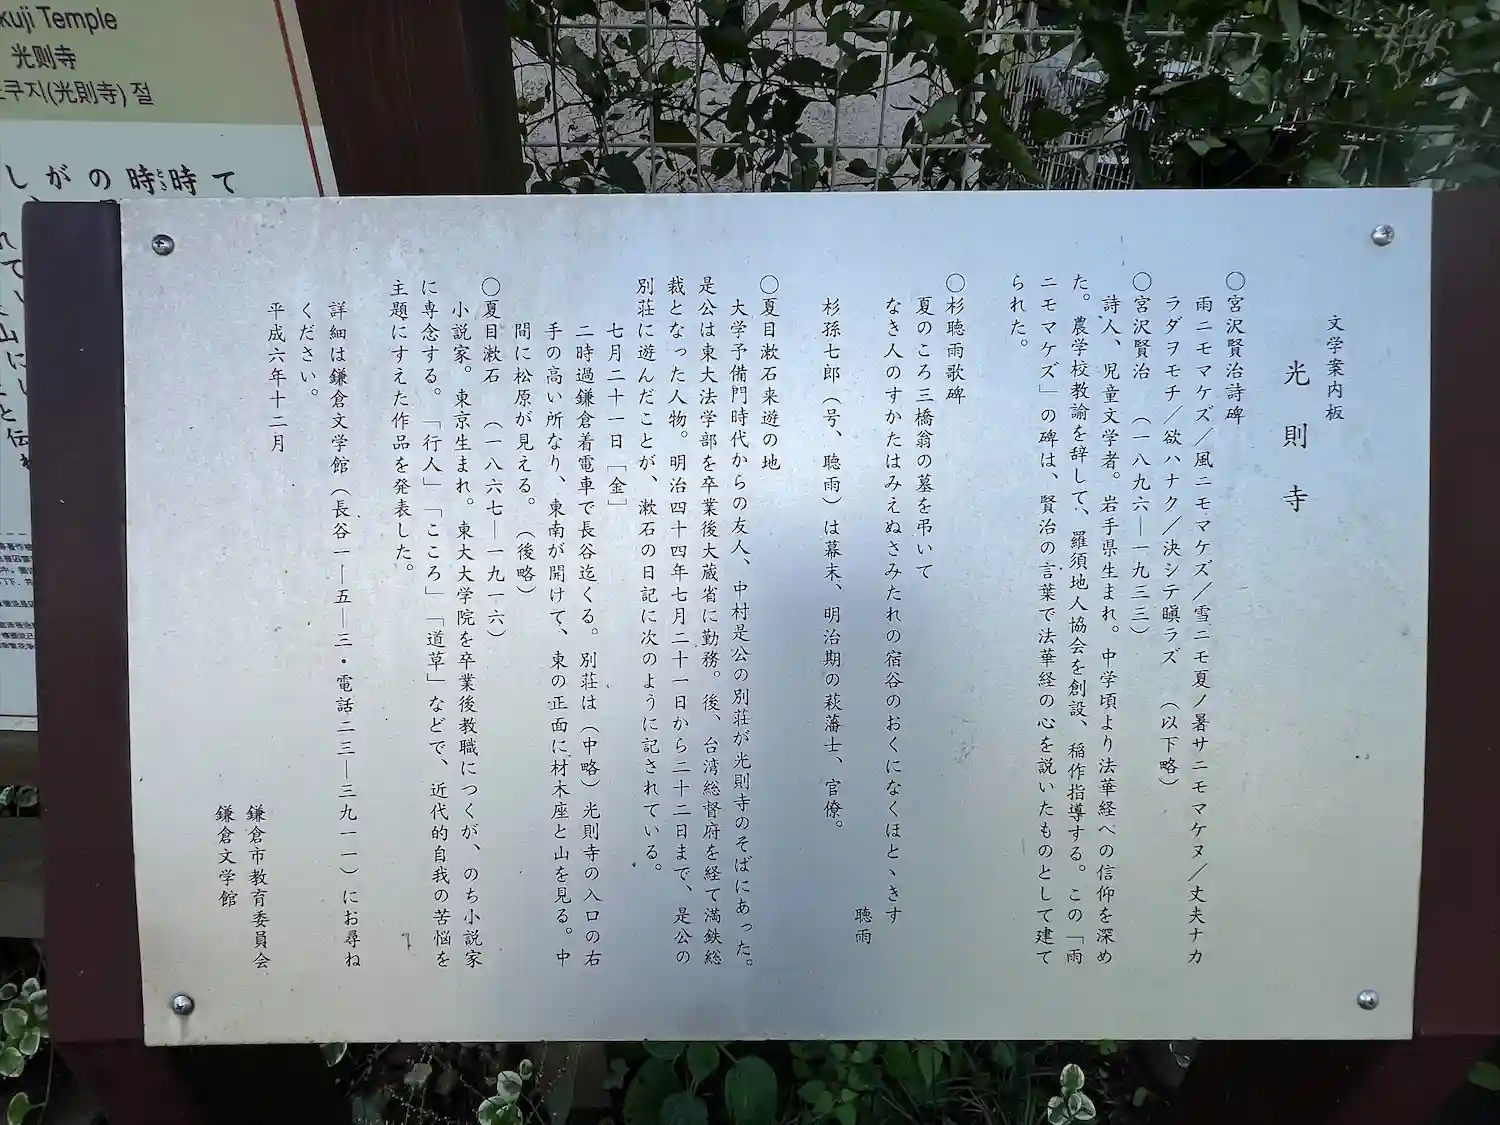 kuji Temple
光则寺
쿠지(光則寺) 절
しがの時時て
とき
文学案内板
光則寺
〇宮沢賢治詩碑
雨ニモマケズ／風ニモマケズ／雪ニモ夏ノ暑サニモマケヌ／丈夫ナカ
ラダヲモチ／欲ハナク／決シテ瞋ラズ（以下略）
〇宮沢賢治（一八九六―一九三三）
詩人、児童文学者。岩手県生まれ。中学頃より法華経への信仰を深め
た。農学校教諭を辞して、羅須地人協会を創設、稲作指導する。この「雨
ニモマケズ」の碑は、賢治の言葉で法華経の心を説いたものとして建て
られた。
〇杉聴雨歌碑
夏のころ三橋翁の墓を弔いて
なき人のすかたはみえぬさみたれの宿谷のおくになくほとゝきす
聴雨
杉孫七郎（号、聴雨）は幕末、明治期の萩藩士、官僚。
〇夏目漱石来遊の地
大学予備門時代からの友人、中村是公の別荘が光則寺のそばにあった。
是公は東大法学部を卒業後大蔵省に勤務。後、台湾総督府を経て満鉄総
裁となった人物。明治四十四年七月二十一日から二十二日まで、是公の
別荘に遊んだことが、漱石の日記に次のように記されている。
七月二十一日［金］
二時過鎌倉着電車で長谷迄くる。別荘は（中略）光則寺の入口の右
手の高い所なり、東南が開けて、東の正面に材木座と山を見る。中
間に松原が見える。（後略）
〇夏目漱石（一八六七―一九一六）
小説家。東京生まれ。東大大学院を卒業後教職につくが、のち小説家
に専念する。「行人」「こころ」「道草」などで、近代的自我の苦悩を
主題にすえた作品を発表した。
詳細は鎌倉文学館（長谷一―五―三・電話二三―三九一一）にお尋ね
ください。
平成六年十二月
鎌倉市教育委員会
鎌倉文学館